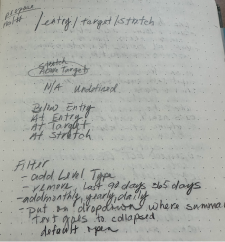 /entry/target/stretch
stretch
Above Target
N/A undefined
Below Entry
At Entry
At Target
At Stretch
Filter
- add Level Type
- remove last 90 days 365 days
- add monthly, yearly, daily
- put in dropdowns where summary
text goes to collapsed
default open